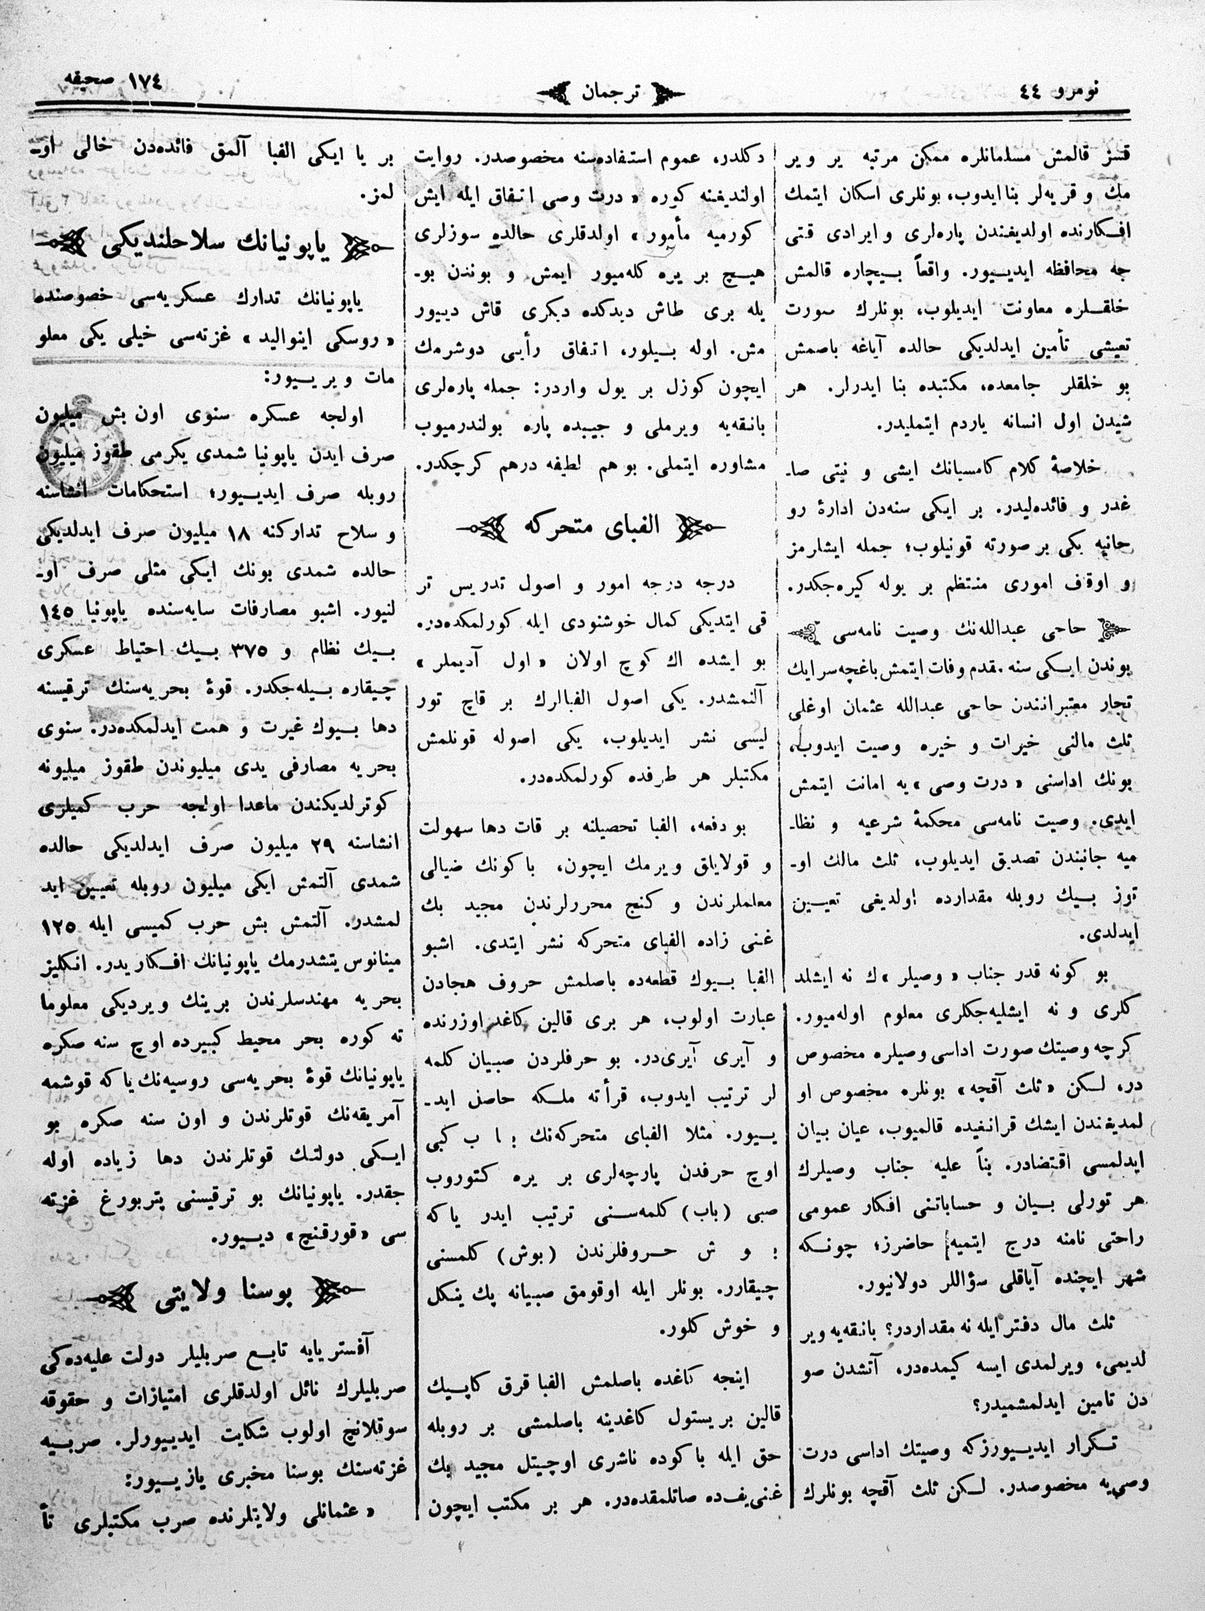 نومرو ٤٤
ترجمان
١٧٤ صحيفه
قسز قالمش مسلمانلره ممكن مرتبه ير وير
مك و قريه‌لر بنا ايدوب، بونلرى اسكان ايتمك
افكارنده اولديغندن پاره‌لرى و ايرادى قتى
جه محافظه ايديـيور. واقعاً بيچاره قالمش
خلقلره معاونت ايديلوب، بونلرك صورت
تعيشى تأمين ايدلديكى حالده آياغه باصمش
بو خلقلر جامعده، مكتبده بنا ايدرلر. هر
شيدن اول انسانه ياردم ايتمليدر.
خلاصۀ كلام كامسيانك ايشى و نيتى صاـ
غدر و فائده‌ليدر. بر ايكى سنه‌دن ادارۀ رو
حانيه يكى بر صورته قونيلوب؛ جمله ايشارمز
و اوقاف امورى منتظم بر يوله كيره‌جكدر.
حاجى عبدالله‌نك وصيت نامه‌سى
بوندن ايكى سنه مقدم وفات ايتمش باغچه‌سرايك
تجار معتبرانندن حاجى عبدالله عثمان اوغلى
ثلث مالنى خيرات و خيره وصيت ايدوب،
بونك اداسنى «درت وصى» يه امانت ايتمش
ايدى. وصيت نامه‌سى محكمۀ شرعيه و نظاـ
ميه جانبندن تصديق ايديلوب، ثلث مالك اوـ
توز بيك روبله مقدارده اولديغى تعيين
ايدلدى.
بو كونه قدر جناب «وصيلر»ك نه ايشلد
كلرى و نه ايشليه‌جكلرى معلوم اوله‌ميور.
كرچه وصيتك صورت اداسى وصيلره مخصوص
در، لكن «ثلث آقچه» بونلره مخصوص او
لمديغندن ايشك قرانغيده قالميوب، عيان بيان
ايدلمسى اقتضادر. بناً عليه جناب وصيلرك
هر تورلى بيان و حساباتنى افكار عمومى
راحتى نامنه درج ايتميه حاضرز؛ چونكه
شهر ايچنده آياقلى سؤاللر دولانيور.
ثلث مال دفتر ايله نه مقداردر؟ بانقه‌يه وير
لديمى، ويرلمدى ايسه كيمده‌در، آتشدن صو
دن تامين ايدلمشميدر؟
تكرار ايديـيورزكه وصيتك اداسى درت
وصى‌يه مخصوصدر. لكن ثلث آقچه بونلرك
دكلدر، عموم استفاده‌سنه مخصوصدر. روايت
اولنديغنه كوره «درت وصى اتفاق ايله ايش
كورميه مأمور» اولدقلرى حالده سوزلرى
هيچ بر يره كله‌ميور ايمش و بوندن بوـ
يله برى طاش ديدكده ديكرى قاش ديـيور
مش. اوله بيلور، اتفاق رأيى دوشرمك
ايچون كوزل بر يول واردر: جمله پاره‌لرى
بانقه‌يه ويرملى و جيبده پاره بولندرميوب
مشاوره ايتملى. بو هم لطيفه درهم كرچكدر.
الفباى متحركه
درجه درجه امور و اصول تدريس تر
قى ايتديكى كمال خوشنودى ايله كورلمكده‌در.
بو ايشده اك كوچ اولان «اول آديملر»
آلنمشدر. يكى اصول الفبالرك بر قاچ تور
ليسى نشر ايديلوب، يكى اصوله قونلمش
مكتبلر هر طرفده كورلمكده‌در.
بو دفعه، الفبا تحصيلنه بر قات دها سهولت
و قولايلق ويرمك ايچون، باكونك ضيالى
معلملرندن و كنج محررلرندن مجيد بك
غنى زاده الفباى متحركه نشر ايتدى. اشبو
الفبا بيوك قطعه‌ده باصلمش حروف هجادن
عبارت اولوب، هر برى قالين كاغد اوزرنده
و آيرى آيرى‌در. بو حرفلردن صبيان كلمه
لر ترتيب ايدوب، قرأته ملكه حاصل ايدـ
يـيور. مثلا الفباى متحركه‌نك ب ا ب كبى
اوچ حرفدن پارچه‌لرى بر يره كتوروب
صبى (باب) كلمه‌سنى ترتيب ايدر ياكه
ب و ش حروفلرندن (بوش) كلمسنى
چيقارر. بونلر ايله اوقومق صبيانه پك ينكل
و خوش كلور.
اينجه كاغده باصلمش الفبا قرق كاپيك
قالين بريستول كاغدينه باصلمشى بر روبله
حق ايله باكوده ناشرى اوچيتل مجيد بك
غنى‌يف‌ده صاتلمقده‌در. هر بر مكتب ايچون
بر يا ايكى الفبا آلمق فائده‌دن خالى اوـ
لمز.
ياپونيانك سلاحلنديكى
ياپونيانك تدارك عسكريه‌سى خصوصنده
«روسكى اينواليد» غزته‌سى خيلى يكى معلو
مات ويريـيور:
اولجه عسكره سنوى اون بش ميليون
صرف ايدن ياپونيا شمدى يكرمى طقوز ميليون
روبله صرف ايديـيور؛ استحكامات انشاسنه
و سلاح تداركنه ١٨ ميليون صرف ايدلديكى
حالده شمدى بونك ايكى مثلى صرف اوـ
لنيور. اشبو مصارفات سايه‌سنده ياپونيا ١٤٥
بيك نظام و ٣٧٥ بيك احتياط عسكرى
چيقاره بيله‌جكدر. قوۀ بحريه‌سنك ترقيسنه
دها بيوك غيرت و همت ايدلمكده‌در: سنوى
بحريه مصارفى يدى ميليوندن طقوز ميليونه
كوترلديكندن ماعدا اولجه حرب كميلرى
انشاسنه ٢٩ ميليون صرف ايدلديكى حالده
شمدى آلتمش ايكى ميليون روبله تعيين ايد
لمشدر. آلتمش بش حرب كميسى ايله ١٢٥
مينانوس يتشدرمك ياپونيانك افكاريدر. انكليز
بحريه مهندسلرندن برينك ويرديكى معلوما
ته كوره بحر محيط كبيرده اوچ سنه صكره
ياپونيانك قوۀ بحريه‌سى روسيه‌نك ياكه قوشمه
آمريقه‌نك قوتلرندن و اون سنه صكره بو
ايكى دولتك قوتلرندن دها زياده اوله
جقدر. ياپونيانك بو ترقيسنى پتربورغ غزته
سى «قورقنچ» ديـيور.
بوسنا ولايتى
آفستريايه تابع صربليلر دولت عليه‌ده‌كى
صربليلرك نائل اولدقلرى امتيازات و حقوقه
سوقلانچ اولوب شكايت ايديـيورلر. صربيه
غزته‌سنك بوسنا مخبرى يازيـيور:
«عثمانلى ولايتلرنده صرب مكتبلرى تأ